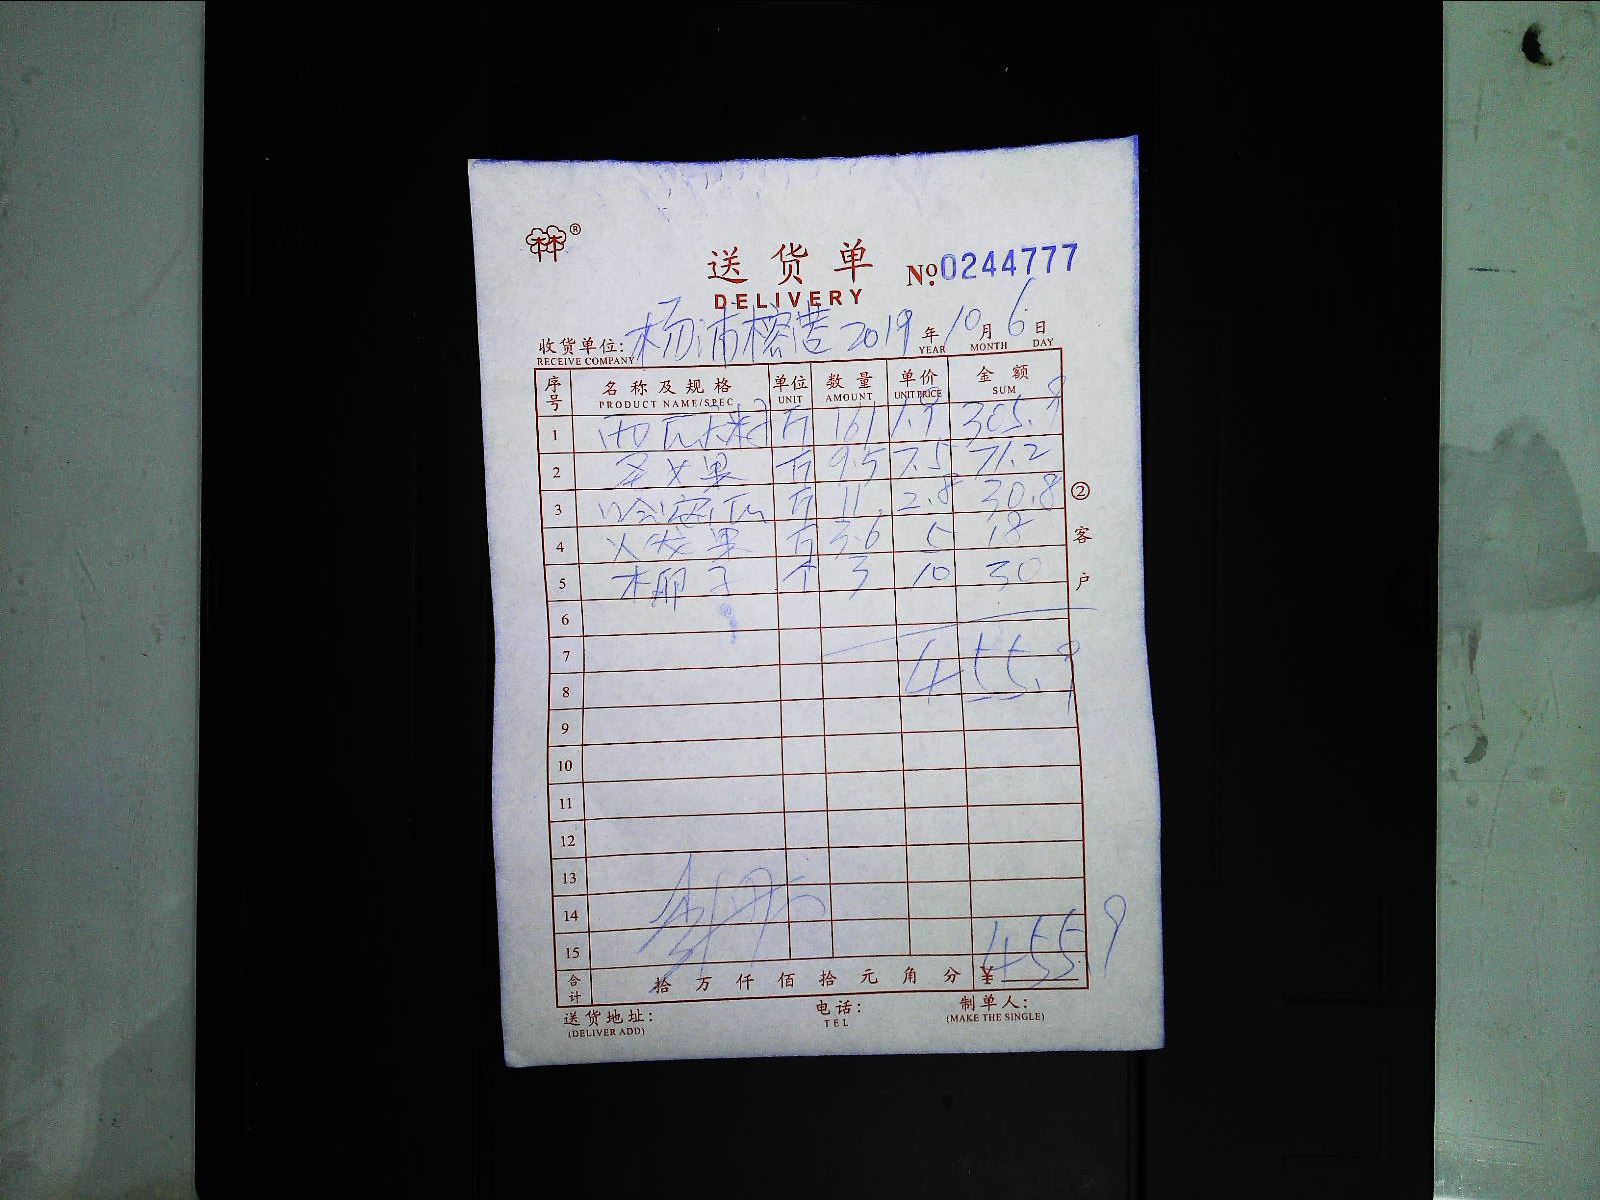 林®
送货单
DELIVERY
№ 0244777
收货单位: 杨浦榕港 2019 年 10 月 6 日
RECEIVE COMPANY YEAR MONTH DAY
序号 名称及规格 单位 数量 单价 金额
PRODUCT NAME/SPEC UNIT AMOUNT UNIT PRICE SUM
1 西瓜 斤 161 1.9 305.9
2 果 斤 9.5 7.5 71.2
3 哈密瓜 斤 11 2.8 30.8
4 火龙果 斤 3.6 5 18
5 椰子 个 3 10 30
6
7
455.9
8
9
10
11
12
13
14
15
合计 拾 万 仟 佰 拾 元 角 分 ¥ 455.9
②客户
送货地址: 电话: 制单人:
(DELIVER ADD) TEL (MAKE THE SINGLE)